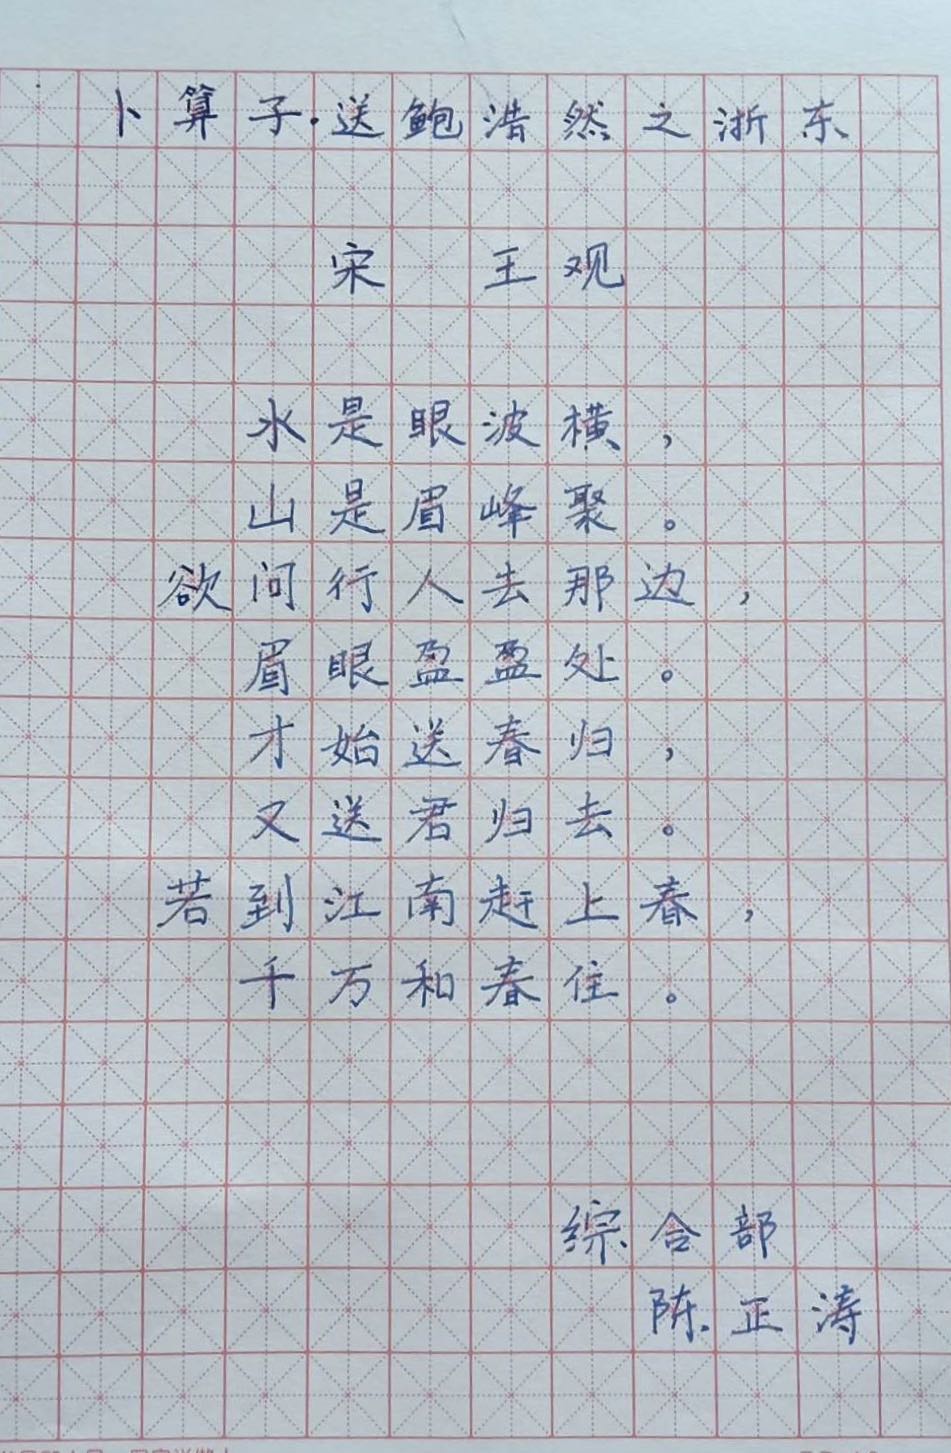 卜算子·送鲍浩然之浙东
宋 王观
水是眼波横，
山是眉峰聚。
欲问行人去那边，
眉眼盈盈处。
才始送春归，
又送君归去。
若到江南赶上春，
千万和春住。
综合部
陈正涛